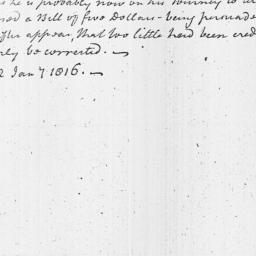 he is probably now on his Journey to
a Bill of five Dollars - being persuade
appear, that too little had been cred
be corrected. ~
Jan 7 1816. ~